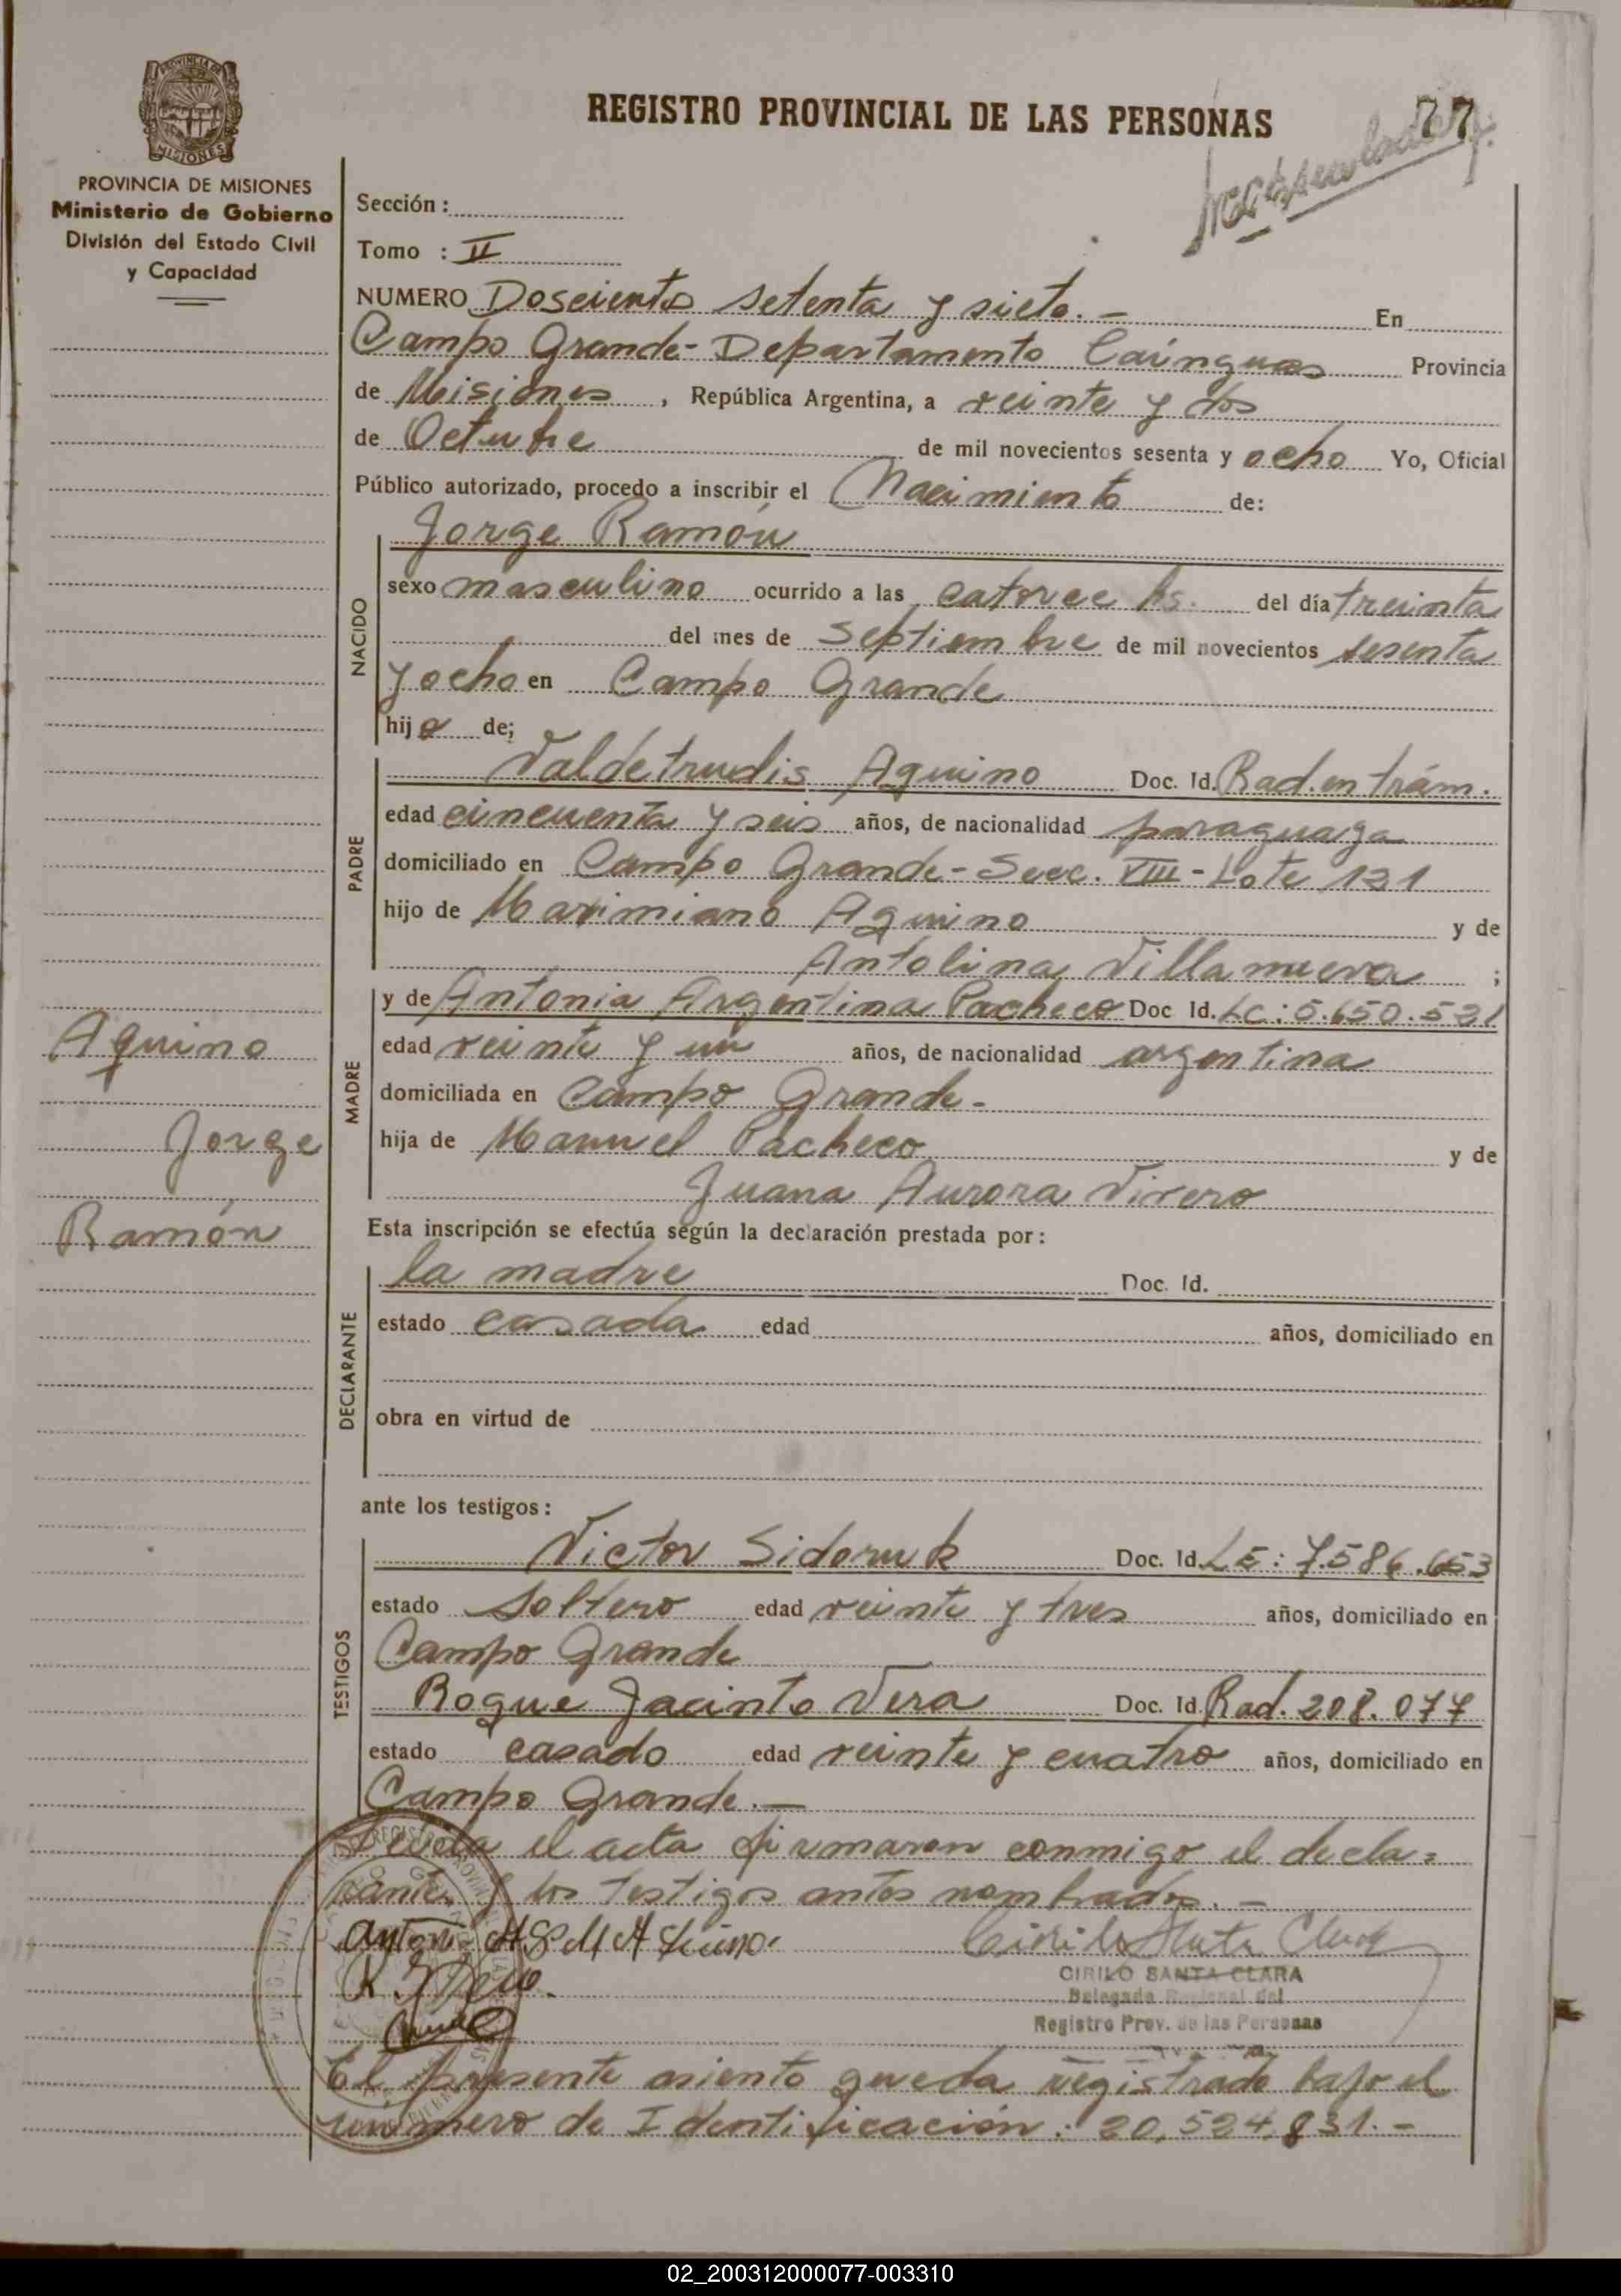 REGISTRO PROVINCIAL DE LAS PERSONAS
77
PROVINCIA DE MISIONES
Ministerio de Gobierno
División del Estado Civil
y Capacidad
Sección :
Tomo : II
NUMERO Doscientos setenta y siete. — En
Campo Grande - Departamento Caínguas Provincia
de Misiones , República Argentina, a veinte y dos
de Octubre de mil novecientos sesenta y ocho Yo, Oficial
Público autorizado, procedo a inscribir el Nacimiento de:
NACIDO
Jorge Ramón
sexo masculino ocurrido a las catorce hs. del día treinta
del mes de Septiembre de mil novecientos sesenta
y ocho en Campo Grande
hijo de;
PADRE
Valdetrudis Aquino Doc. Id. Rad. en trám.
edad cincuenta y seis años, de nacionalidad paraguaya
domiciliado en Campo Grande - Secc. VIII - Lote 131
hijo de Maximiano Aquino y de
Antolina Villanueva ;
MADRE
y de Antonia Argentina Pacheco Doc Id. LC: 5.650.531
edad veinte y un años, de nacionalidad argentina
domiciliada en Campo Grande -
hija de Manuel Pacheco y de
Juana Aurora Vivero
Aquino
Jorge
Ramón
Esta inscripción se efectúa según la declaración prestada por :
DECLARANTE
la madre Doc. Id.
estado casada edad años, domiciliado en
obra en virtud de
ante los testigos :
TESTIGOS
Victor Sidoruk Doc. Id. LE: 7.586.653
estado soltero edad veinte y tres años, domiciliado en
Campo Grande
Roque Jacinto Vera Doc. Id. Rad. 208.077
estado casado edad veinte y cuatro años, domiciliado en
Campo Grande. —
Leída el acta firmaron conmigo el decla=
rante y los testigos antes nombrados. —
CIRILO SANTA CLARA
Delegado Regional del
Registro Prov. de las Personas
El presente asiento queda registrado bajo el
número de Identificación: 20.524.831. -
02_200312000077-003310